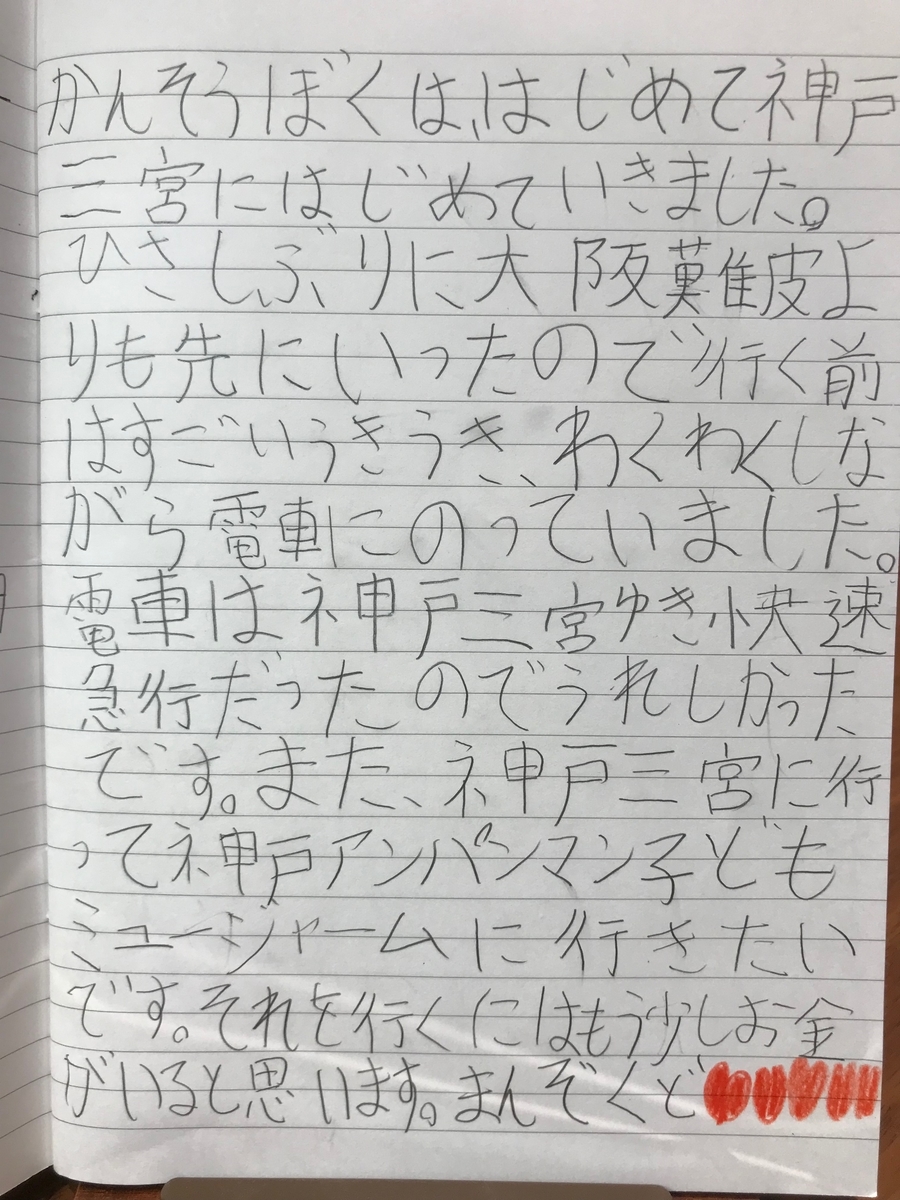 かんそうぼくは、はじめて神戸
三宮にはじめていきました。
ひさしぶりに大阪難波よ
りも先にいったので行く前
はすごいうきうき、わくわくしな
がら電車にのっていました。
電車は神戸三宮ゆき快速
急行だったのでうれしかった
です。また、神戸三宮に行
って神戸アンパンマン子ども
ミュージャームに行きたい
です。それを行くにはもう少しお金
がいると思います。まんぞくど